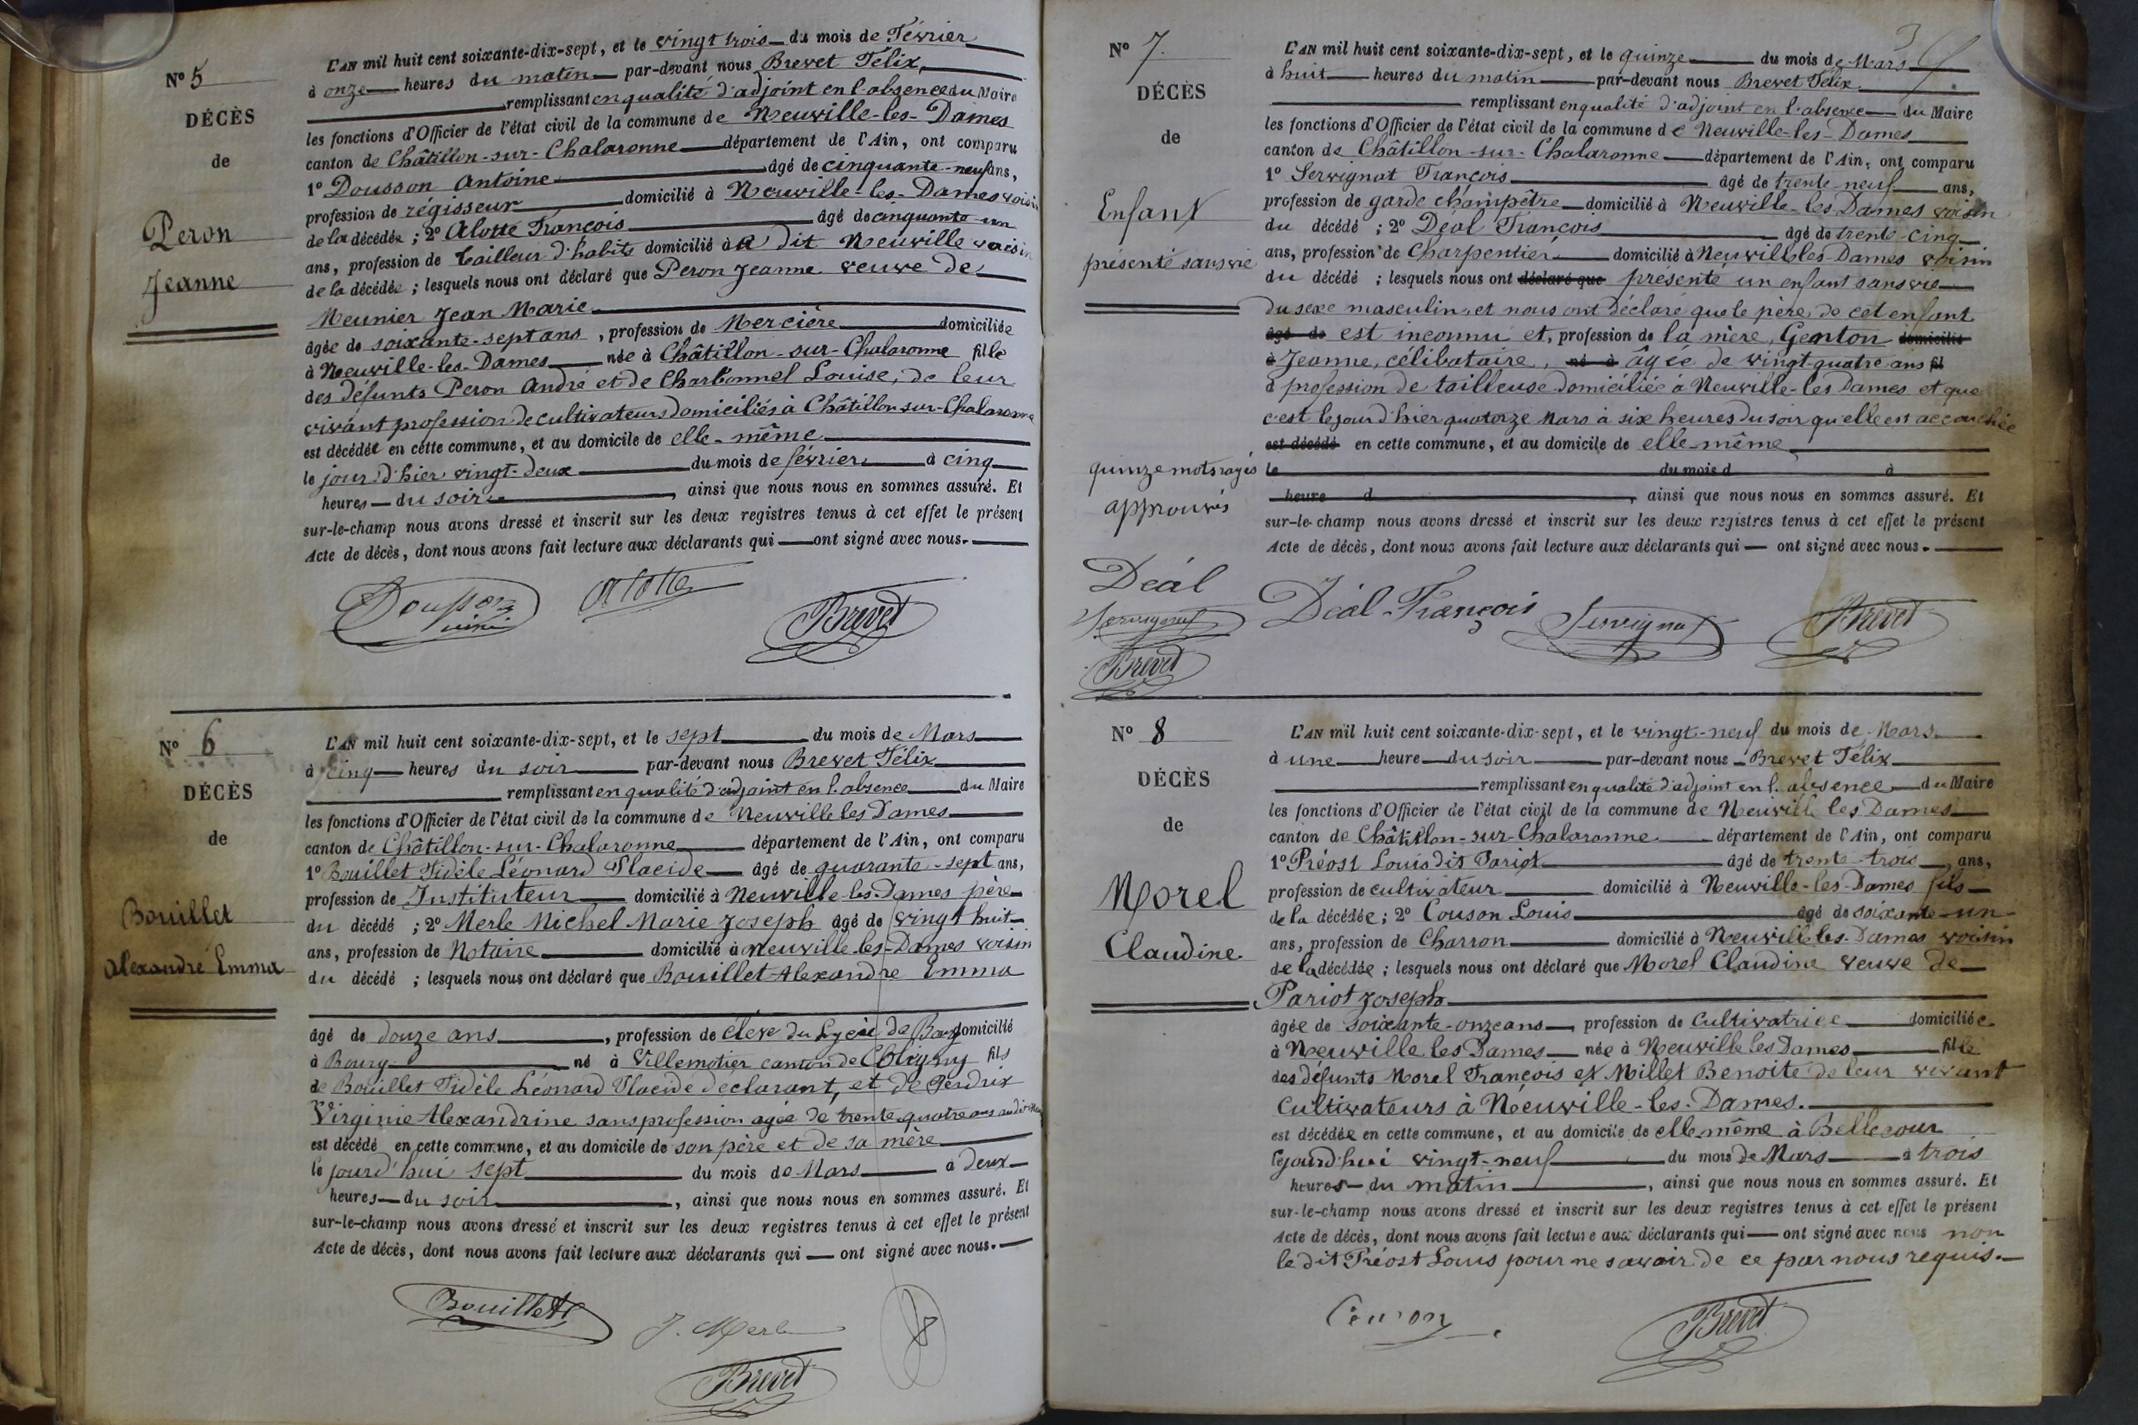 Nº 5
DÉCÈS
de
Peron
Jeanne
L'AN mil huit cent soixante-dix-sept, et le vingt trois du mois de Février
à onze heures du matin par-devant nous Brevet Félix
remplissant en qualité d'adjoint en l'absence du Maire
les fonctions d'Officier de l'état civil de la commune de Neuville-les-Dames
canton de Châtillon-sur-Chalaronne département de l'Ain, ont comparu
1º Dousson Antoine âgé de cinquante-neuf ans,
profession de régisseur domicilié à Neuville-les-Dames voisin
de la décédée ; 2º Alotte François âgé de cinquante-un
ans, profession de tailleur d'habits domicilié à dit Neuville voisin
de la décédée ; lesquels nous ont déclaré que Peron Jeanne veuve de
Meunier Jean Marie
âgée de soixante-sept ans , profession de Mercière domiciliée
à Neuville-les-Dames née à Châtillon-sur-Chalaronne fille
des défunts Peron André et de Charbonnel Louise, de leur
vivant profession de cultivateurs domiciliés à Châtillon-sur-Chalaronne
est décédée en cette commune, et au domicile de elle-même
le jour d'hier vingt-deux du mois de février à cinq
heures du soir , ainsi que nous nous en sommes assuré. Et
sur-le-champ nous avons dressé et inscrit sur les deux registres tenus à cet effet le présent
Acte de décès, dont nous avons fait lecture aux déclarants qui ont signé avec nous.
Dousson Alotte Brevet
Nº 6
DÉCÈS
de
Bouillet
Alexandre Emma
L'AN mil huit cent soixante-dix-sept, et le sept du mois de Mars
à cinq heures du soir par-devant nous Brevet Félix
remplissant en qualité d'adjoint en l'absence du Maire
les fonctions d'Officier de l'état civil de la commune de Neuville les Dames
canton de Châtillon-sur-Chalaronne département de l'Ain, ont comparu
1º Bouillet Fidèle Léonard Placide âgé de quarante-sept ans,
profession de Instituteur domicilié à Neuville-les-Dames père
du décédé ; 2º Merle Michel Marie Joseph âgé de vingt huit
ans, profession de Notaire domicilié à Neuville-les-Dames voisin
du décédé ; lesquels nous ont déclaré que Bouillet Alexandre Emma
âgé de douze ans , profession de élève du Lycée de Bourg domicilié
à Bourg né à Villemotier canton de Coligny fils
de Bouillet Fidèle Léonard Placide déclarant, et de Perdrix
Virginie Alexandrine sans profession agée de trente quatre ans
est décédé en cette commune, et au domicile de son père et de sa mère
le jourd'hui sept du mois de Mars à deux
heures du soir , ainsi que nous nous en sommes assuré. Et
sur-le-champ nous avons dressé et inscrit sur les deux registres tenus à cet effet le présent
Acte de décès, dont nous avons fait lecture aux déclarants qui ont signé avec nous.
Bouillet J. Merle
Brevet
Nº 7
DÉCÈS
de
Enfant
présenté sans vie
L'AN mil huit cent soixante-dix-sept, et le quinze du mois de Mars
à huit heures du matin par-devant nous Brevet Félix
remplissant en qualité d'adjoint en l'absence du Maire
les fonctions d'Officier de l'état civil de la commune de Neuville-les-Dames
canton de Châtillon-sur-Chalaronne département de l'Ain, ont comparu
1º Servignat François âgé de trente neuf ans,
profession de garde champêtre domicilié à Neuville-les Dames voisin
du décédé ; 2º Déal François âgé de trente-cinq
ans, profession de Charpentier domicilié à Neuville les-Dames voisin
du décédé ; lesquels nous ont déclaré que présenté un enfant sans vie
du sexe masculin, et nous ont déclaré que le père de cet enfant
âgé de est inconnu et, profession de la mère, Genton domicilié
à Jeanne, célibataire, né à âgée de vingt-quatre ans fil
d profession de tailleuse domiciliée à Neuville-les Dames et que
c'est le jour d'hier quatorze Mars à six heures du soir qu'elle est accouchée
est décédé en cette commune, et au domicile de elle-même
le du mois d à
heure d , ainsi que nous nous en sommes assuré. Et
sur-le-champ nous avons dressé et inscrit sur les deux registres tenus à cet effet le présent
Acte de décès, dont nous avons fait lecture aux déclarants qui ont signé avec nous.
quinze mots rayés
approuvés
Déal
Servignat
Brevet
Déal François Servignat Brevet
Nº 8
DÉCÈS
de
Morel
Claudine
L'AN mil huit cent soixante-dix-sept, et le vingt-neuf du mois de Mars
à une heure du soir par-devant nous Brevet Félix
remplissant en qualité d'adjoint en l'absence du Maire
les fonctions d'Officier de l'état civil de la commune de Neuville les Dames
canton de Châtillon-sur-Chalaronne département de l'Ain, ont comparu
1º Préost Louis dit Pariot âgé de trente-trois ans,
profession de cultivateur domicilié à Neuville-les-Dames fils
de la décédée ; 2º Couson Louis âgé de soixante-un
ans, profession de Charron domicilié à Neuville les-Dames voisin
de la décédée ; lesquels nous ont déclaré que Morel Claudine veuve de
Pariot Joseph
âgée de soixante-onze ans , profession de Cultivatrice domiciliée
à Neuville les Dames née à Neuville les Dames fille
des défunts Morel François et Millet Benoite de leur vivant
Cultivateurs à Neuville-les-Dames.
est décédée en cette commune, et au domicile de elle même à Bellecour
le jourd'hui vingt-neuf du mois de Mars à trois
heures du matin , ainsi que nous nous en sommes assuré. Et
sur-le-champ nous avons dressé et inscrit sur les deux registres tenus à cet effet le présent
Acte de décès, dont nous avons fait lecture aux déclarants qui ont signé avec nous non
le dit Préost Louis pour ne savoir de ce par nous requis.
Couson Brevet